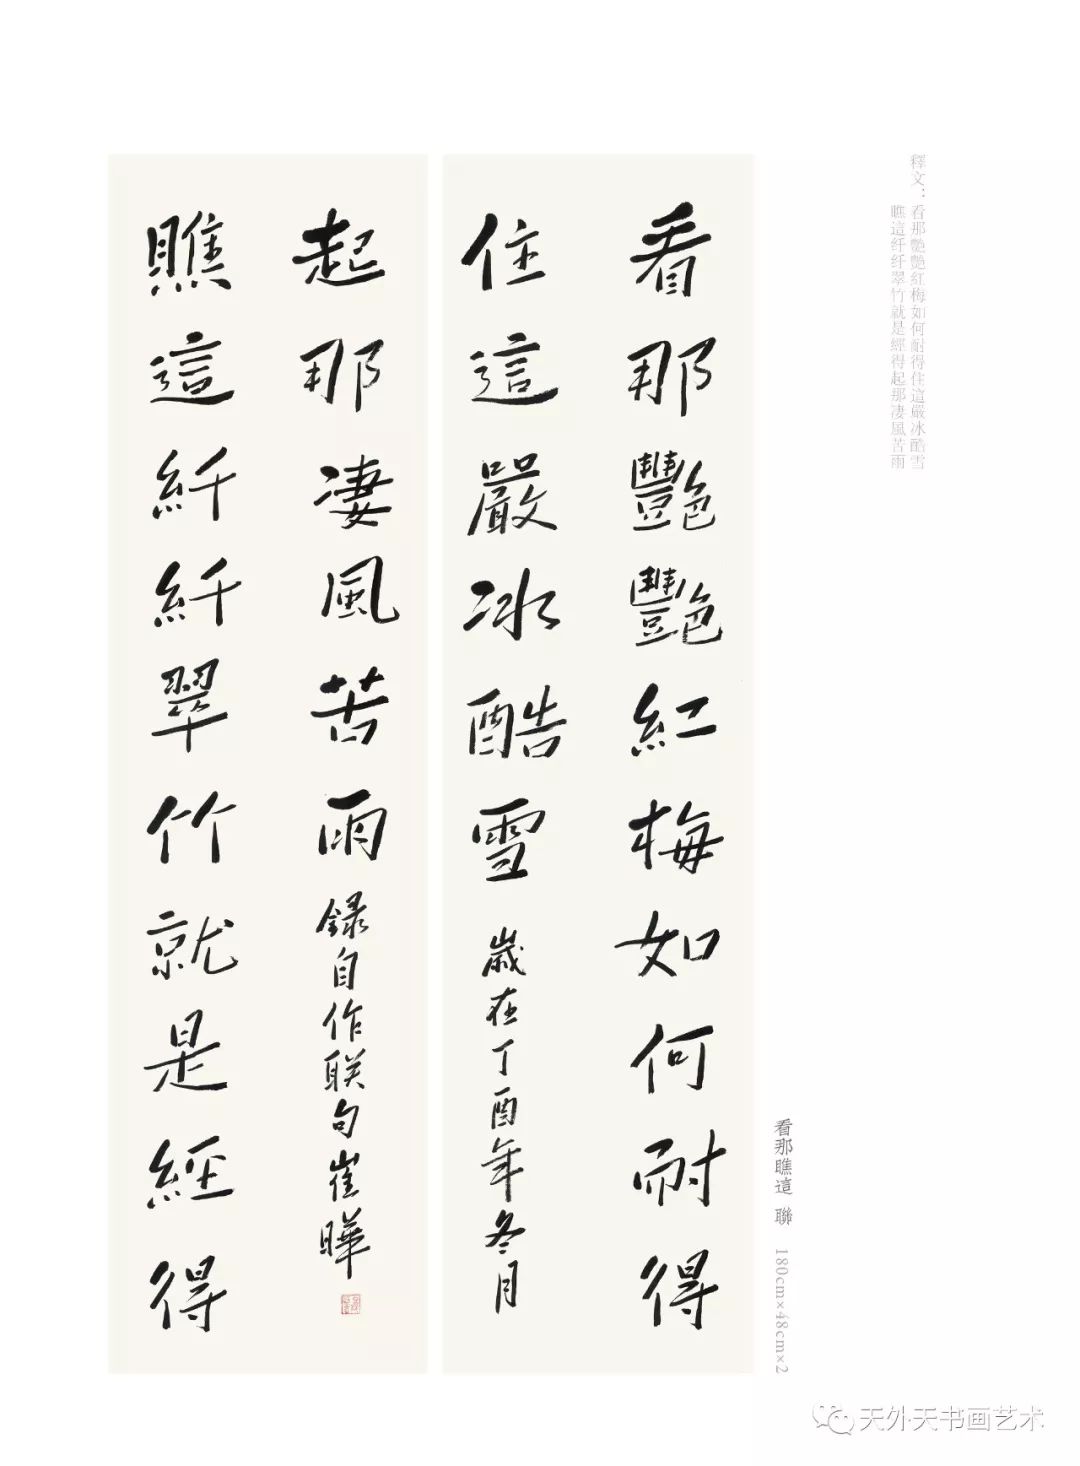 釋文：看那艷艷紅梅如何耐得住這嚴冰酷雪
瞧這纤纤翠竹就是經得起那凄風苦雨
看那艷艷紅梅如何耐得
住這嚴冰酷雪
歲在丁酉年冬月
瞧這纤纤翠竹就是經得
起那凄風苦雨
録自作联句崔曄
看那瞧這 聯 180cm×48cm×2
天外天书画艺术